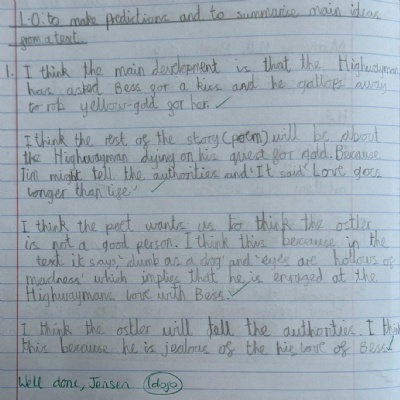 L.O: to make predictions and to summarise main ideas
from a text.
1. I think the main development is that the Highwayman
has asked Bess for a kiss and he gallops away
to rob yellow gold for her.
I think the rest of the story (poem) will be about
the Highwayman dying on his quest for gold. Because
Tim might tell the authorities and 'It said' Love goes
longer than life'
I think the poet wants us to think the ostler
is not a good person. I think this because in the
text it says, 'dumb as a dog' and 'eyes are hollows of
madness' which implys that he is enraged at the
Highwaymans love with Bess.
I think the ostler will tell the authorities. I think
this because he is jealous of the love of Bess
Well done, Jensen dojo